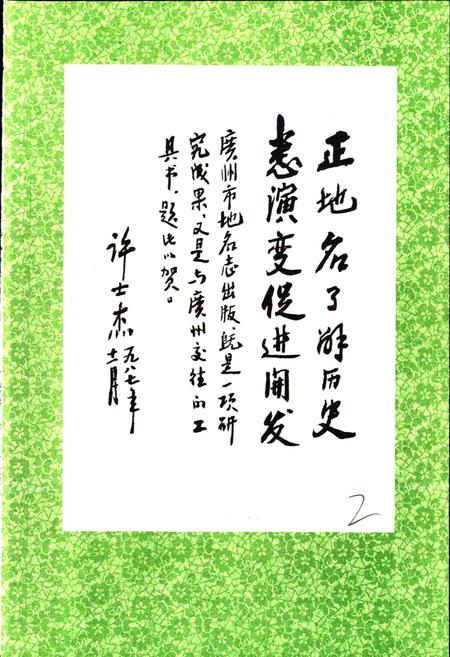 正地名了解历史
悉演变促进開发
廣州市地名志出版、既是一项研
究成果、又是与廣州交往的工
具书、题此以贺。
许士杰一九八七年
十二月
2